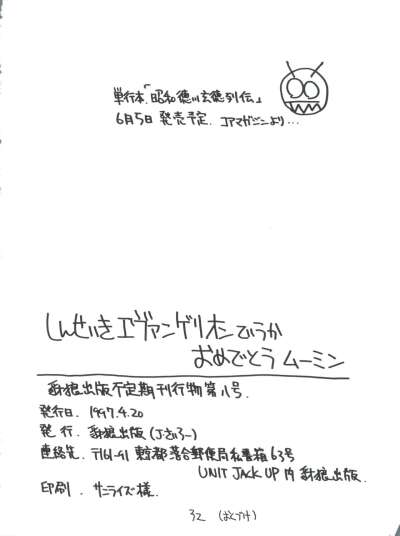 単行本「昭和徳川玄徳列伝」
6月5日 発売予定. コアマガジンより...
しんせいきエヴァンゲリオンていうか
おめでとうムーミン
出版不定期刊行物第八号.
発行日. 1997.4.20
発 行. 出版
連絡先. 〒161-91 東京都落合郵便局私書箱63号
UNIT JACK UP内 出版.
印刷. サンライズ様.
32